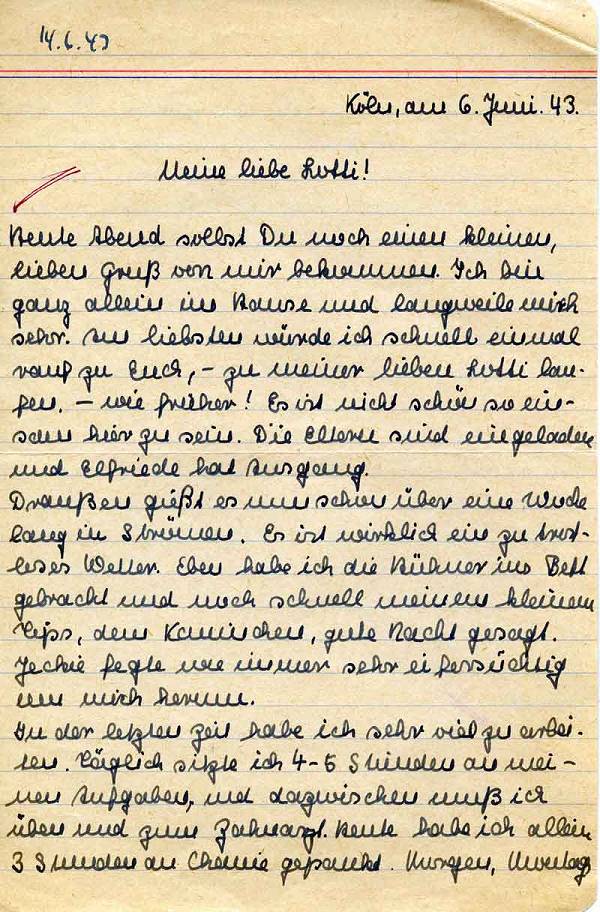 14.6.43
Köln, am 6. Juni. 43.
Meine liebe Lotti!
Heute Abend sollst Du noch einen kleinen,
lieben Gruß von mir bekommen. Ich bin
ganz allein im Hause und langweile mich
sehr. Am liebsten würde ich schnell einmal
rauf zu Euch, – zu meiner lieben Lotti lau-
fen. – wie früher! Es ist nicht schön so ein-
sam hier zu sein. Die Eltern sind eingeladen
und Elfriede hat Ausgang.
Draußen gießt es nun schon über eine Woche
lang in Strömen. Es ist wirklich ein zu trost-
loses Wetter. Eben habe ich die Hühner ins Bett
gebracht und noch schnell meinem kleinem
dem Kaninchen, gute Nacht gesagt.
Jeckie fegte wie immer sehr eifersüchtig
um mich herum.
In der letzten Zeit habe ich sehr viel zu arbei-
ten. Täglich sitze ich 4-5 Stunden an mei-
nen Aufgaben, und dazwischen muß ich
üben und zum Zahnarzt. Heute habe ich allein
3 Stunden an Chemie gepaukt. Morgen, Montag